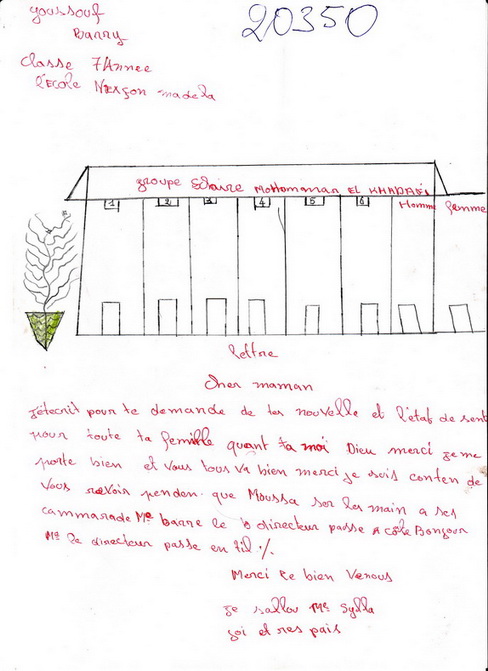 youssouf
Barry
20350
Classe 7Annee
l'Ecole Nelson madela
groupe Scolaire Mohamman EL KHADAFI
1 2 3 4 5 6 Homme femme
lettre
Cher maman
jétecrit pour te demande de tes nouvelle et l'état de sent
pour toute ta femille quant ta moi Dieu merci je me
porte bien et vous tous va bien merci je suis conten de
vous revoir penden que Moussa ser les main a ses
cammarade Mr barre le directeur passe a côte Bonjour
Mr le directeur passe en fil ./.
Merci le bien Venous
je sallou Mr Sylla
joi et res pais